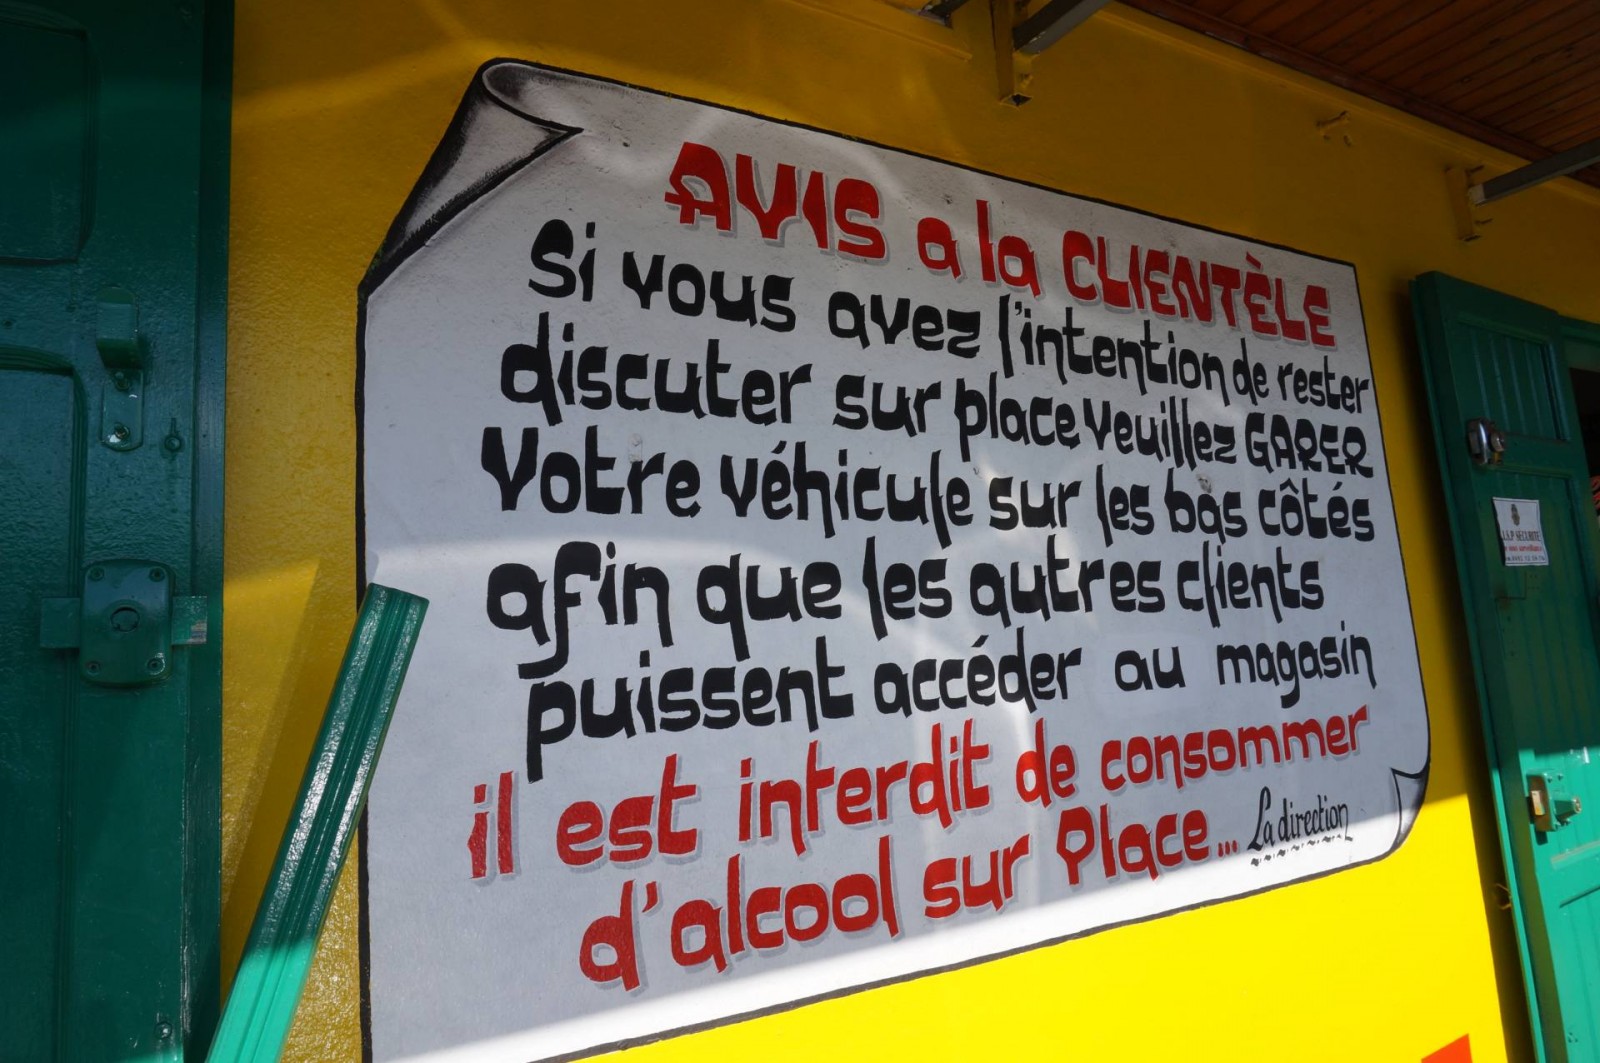 AVIS a la CLIENTÈLE
Si vous avez l'intention de rester
discuter sur place veuillez GARER
Votre véhicule sur les bas côtés
afin que les autres clients
puissent accéder au magasin
il est interdit de consommer
d'alcool sur Place... La direction
SÉCURITÉ